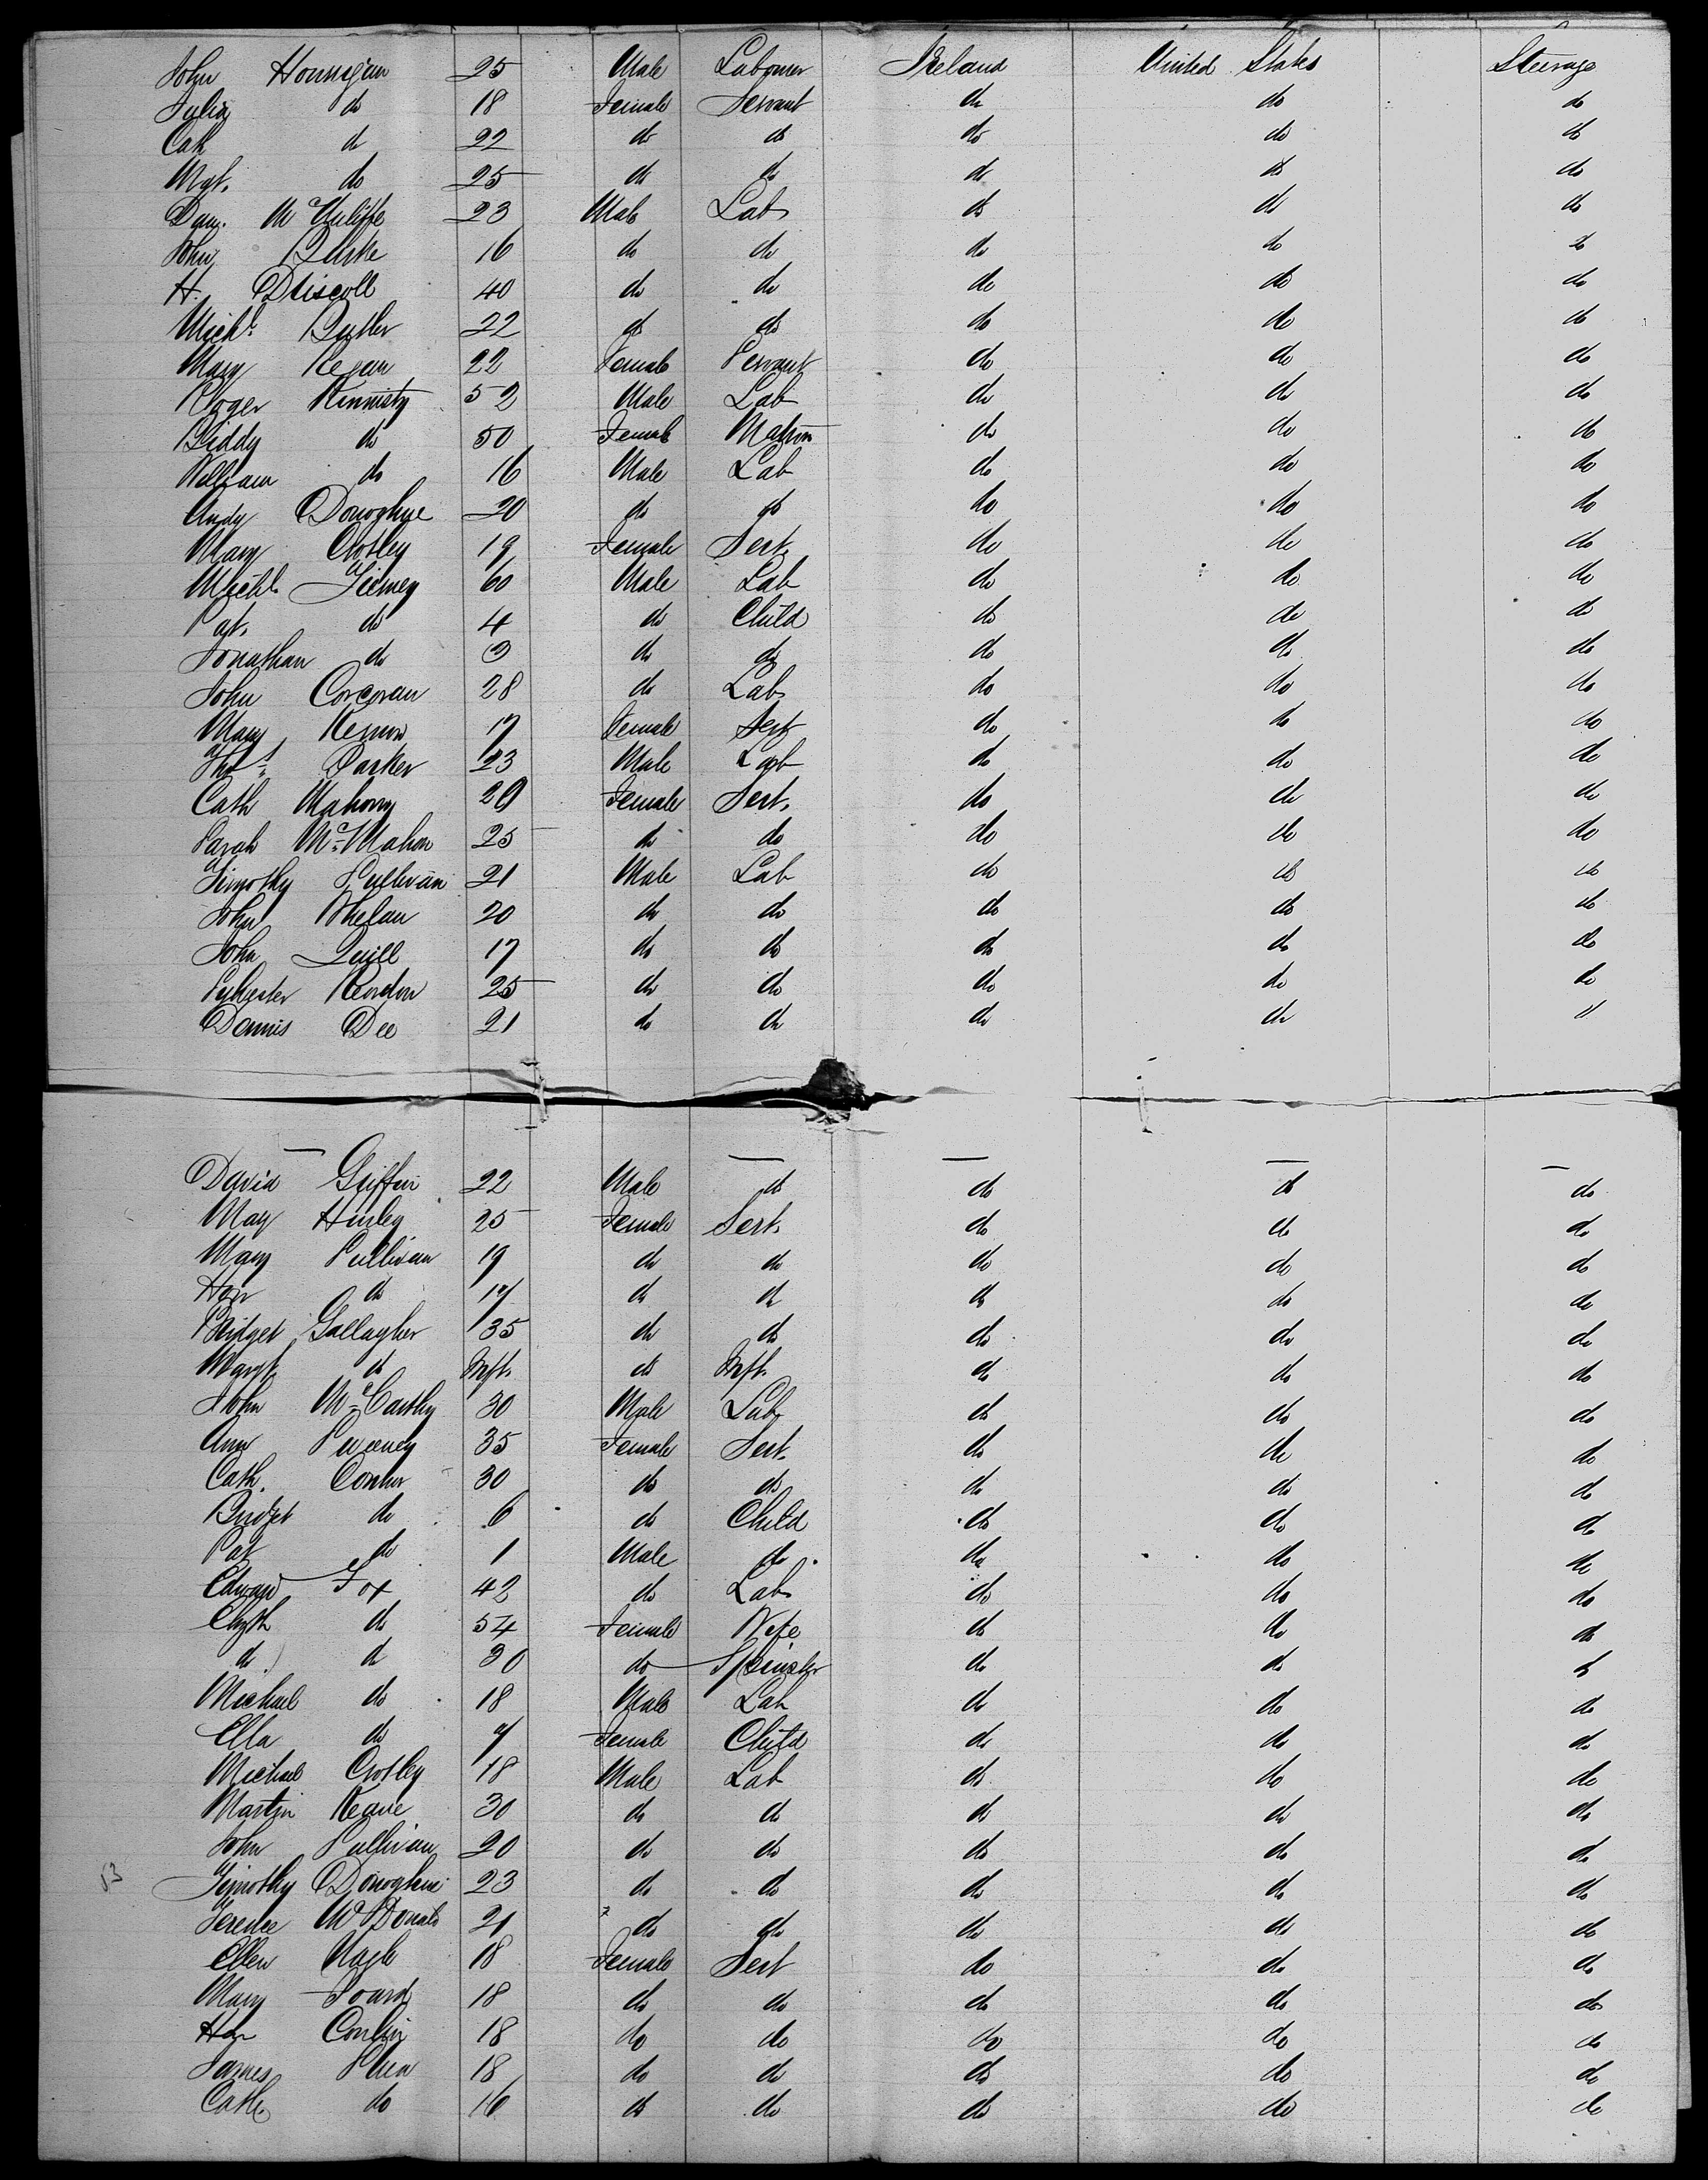 John Hounigan 25 Male Labourer Ireland United States Steerage
Julia do 18 Female Servant do do do
Cath do 22 do do do do do
Mgt. do 25 do do do do do
Dan. McAuliffe 23 Male Lab do do do
John Burke 16 do do do do do
H. Driscoll 40 do do do do do
Michl. Butler 22 do do do do do
Mary Regan 22 Female Servant do do do
Roger Kennisty 52 Male Lab do do do
Biddy do 50 Female Matron do do do
William do 16 Male Lab do do do
Andy Donoghue 20 do do do do do
Mary Crotley 19 Female Sert. do do do
Michl. Tierney 60 Male Lab do do do
Pat. do 4 do Child do do do
Jonathan do 3 do do do do do
John Corcoran 28 do Lab do do do
Mary 17 Female Sert do do do
Thos. Parker 23 Male Lab do do do
Cath Mahony 20 Female Sert. do do do
Sarah McMahon 25 do do do do do
Timothy Sullivan 21 Male Lab do do do
John Whelan 20 do do do do do
John Quill 17 do do do do do
Sylvester Reardon 25 do do do do do
Dennis Dee 21 do do do do "
David Griffin 22 Male do do do do
May Hurley 25 Female Sert. do do do
Mary Sullivan 19 do do do do do
Hon do 17 do do do do do
Bridget Gallagher 35 do do do do do
Margt do Inft. do Inft. do do do
John McCarthy 30 Male Lab do do do
Ann Sweeney 35 Female Sert. do do do
Cath. Connor 30 do do do do do
Bridget do 6 do Child do do do
Pat do 1 Male do do do do
Edward Fox 42 do Lab do do do
Elizth do 54 Female Wife do do do
do do 30 do Spinster do do do
Michael do 18 Male Lab do do do
Ella do 7 Female Child do do do
Michael Crotley 18 Male Lab do do do
Martin Keane 30 do do do do do
John Sullivan 20 do do do do do
53 Timothy Donoghue 23 do do do do do
Terence McDonald 21 do do do do do
Ellen Nagle 18 Female Sert do do do
Mary 18 do do do do do
Hon 18 do do do do do
James Shea 18 do do do do do
Cath. do 16 do do do do do